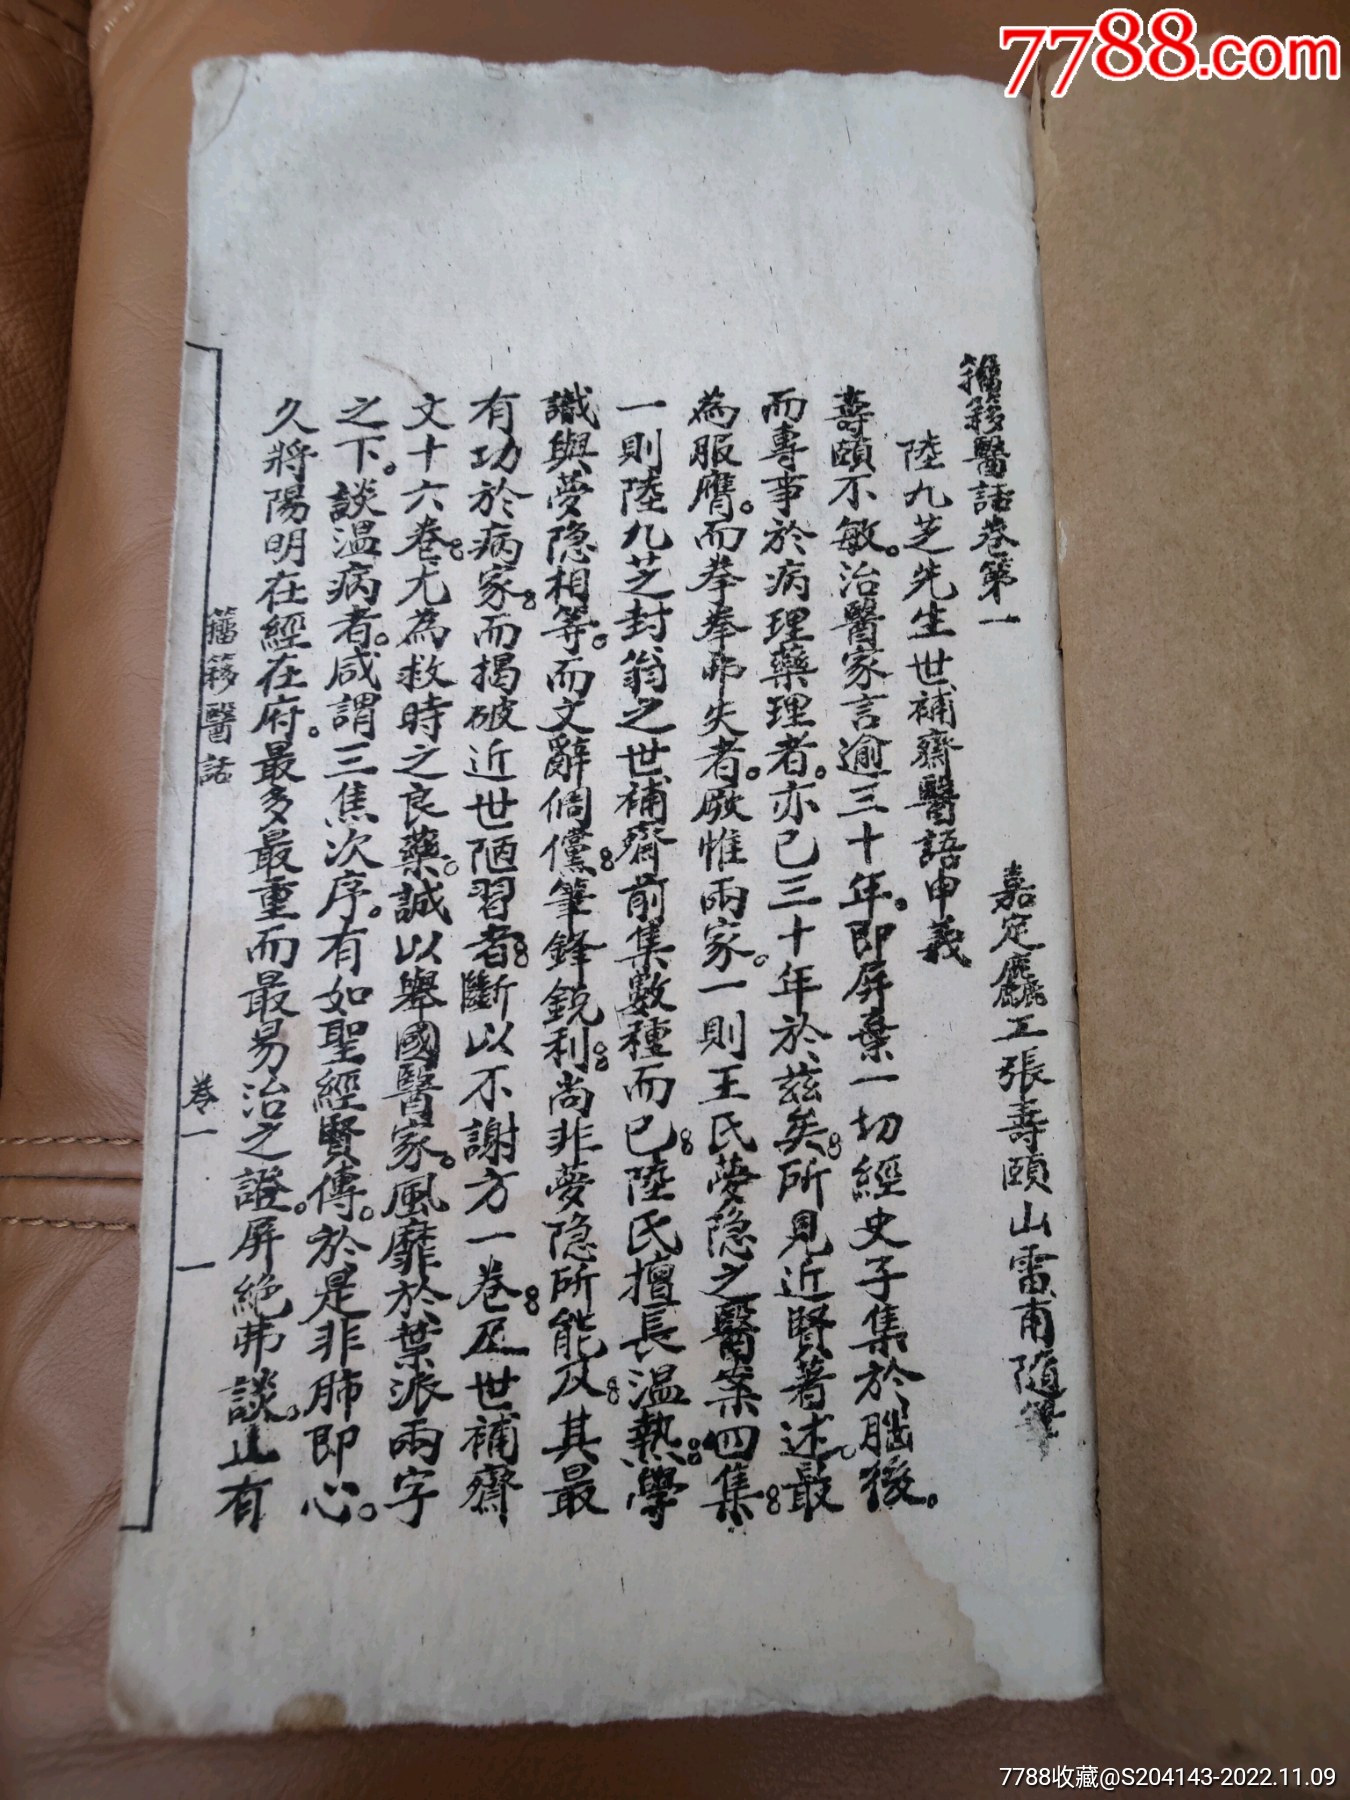 7788.com
籀簃醫話卷第一
嘉定麤工張壽頤山雷甫隨筆
陸九芝先生世補齋醫語申義
壽頤不敏。治醫家言逾三十年。即屏棄一切經史子集於腦後。
而專事於病理藥理者。亦已三十年於茲矣。所見近賢著述。最
為服膺。而拳拳弗失者。厥惟兩家。一則王氏夢隐之醫案四集。
一則陸九芝封翁之世補齋前集數種而已。陸氏擅長温熱。學
識與夢隐相等。而文辭倜儻。筆鋒銳利。尚非夢隐所能及。其最
有功於病家。而揭破近世陋習者。斷以不謝方一卷。及世補齋
文十六卷。尤為救時之良藥。誠以舉國醫家。風靡於葉派兩字
之下。談温病者。咸謂三焦次序。有如聖經賢傳。於是非肺即心。
久將陽明在經在府。最多最重而最易治之證。屏絕弗談。止有
籀簃醫話
卷一
一
7788收藏@S204143-2022.11.09